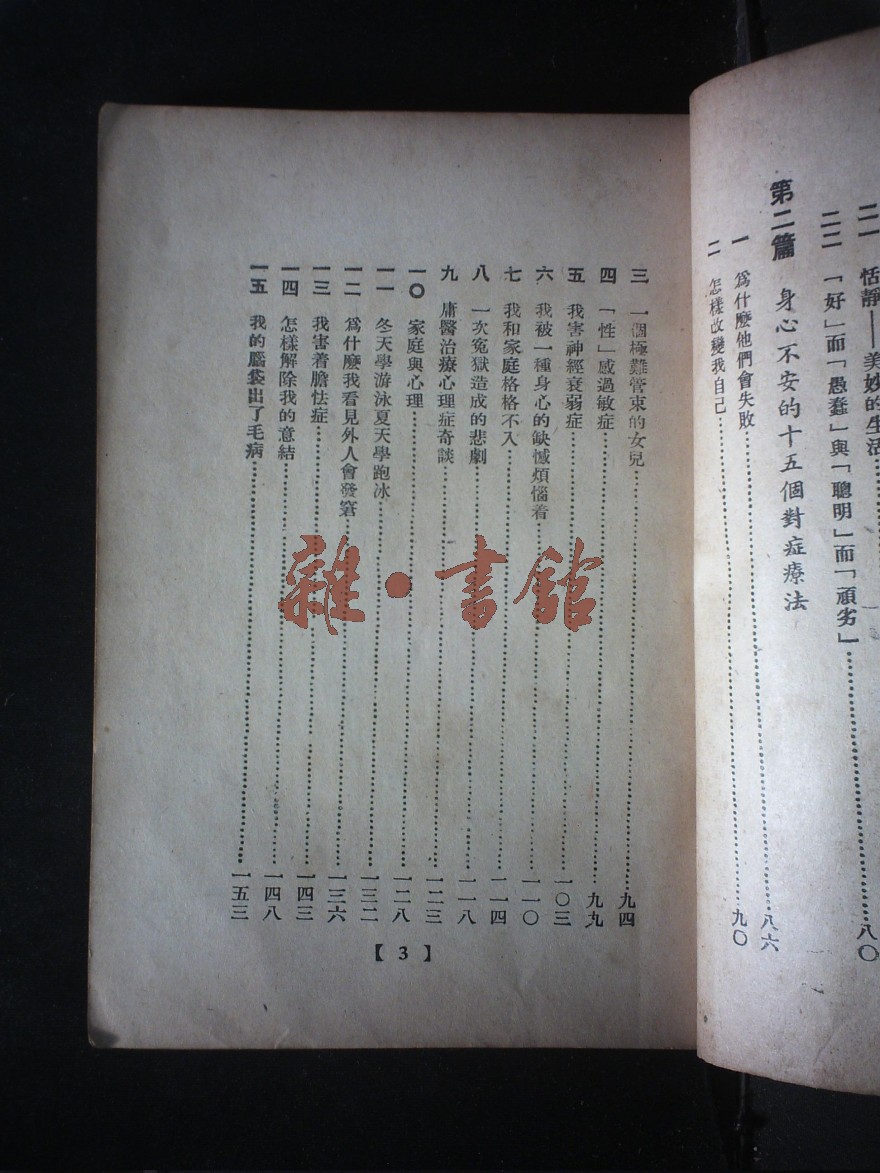 二一 恬靜——美妙的生活……八〇
二二 「好」而「愚蠢」與「聰明」而「頑劣」
第二篇 身心不安的十五個對症療法
一 爲什麼他們會失敗……八六
二 怎樣改變我自己……九〇
三 一個極難管束的女兒……九四
四 「性」感過敏症……九九
五 我害神經衰弱症……一〇三
六 我被一種身心的缺憾煩惱着……一一〇
七 我和家庭格格不入……一一四
八 一次冤獄造成的悲劇……一一八
九 庸醫治療心理症奇談……一二三
一〇 家庭與心理……一二八
一一 冬天學游泳夏天學跑冰……一三二
一二 爲什麼我看見外人會發窘……一三六
一三 我害着膽怯症……一四三
一四 怎樣解除我的意結……一四八
一五 我的腦袋出了毛病……一五三
【 3 】
雜·書館